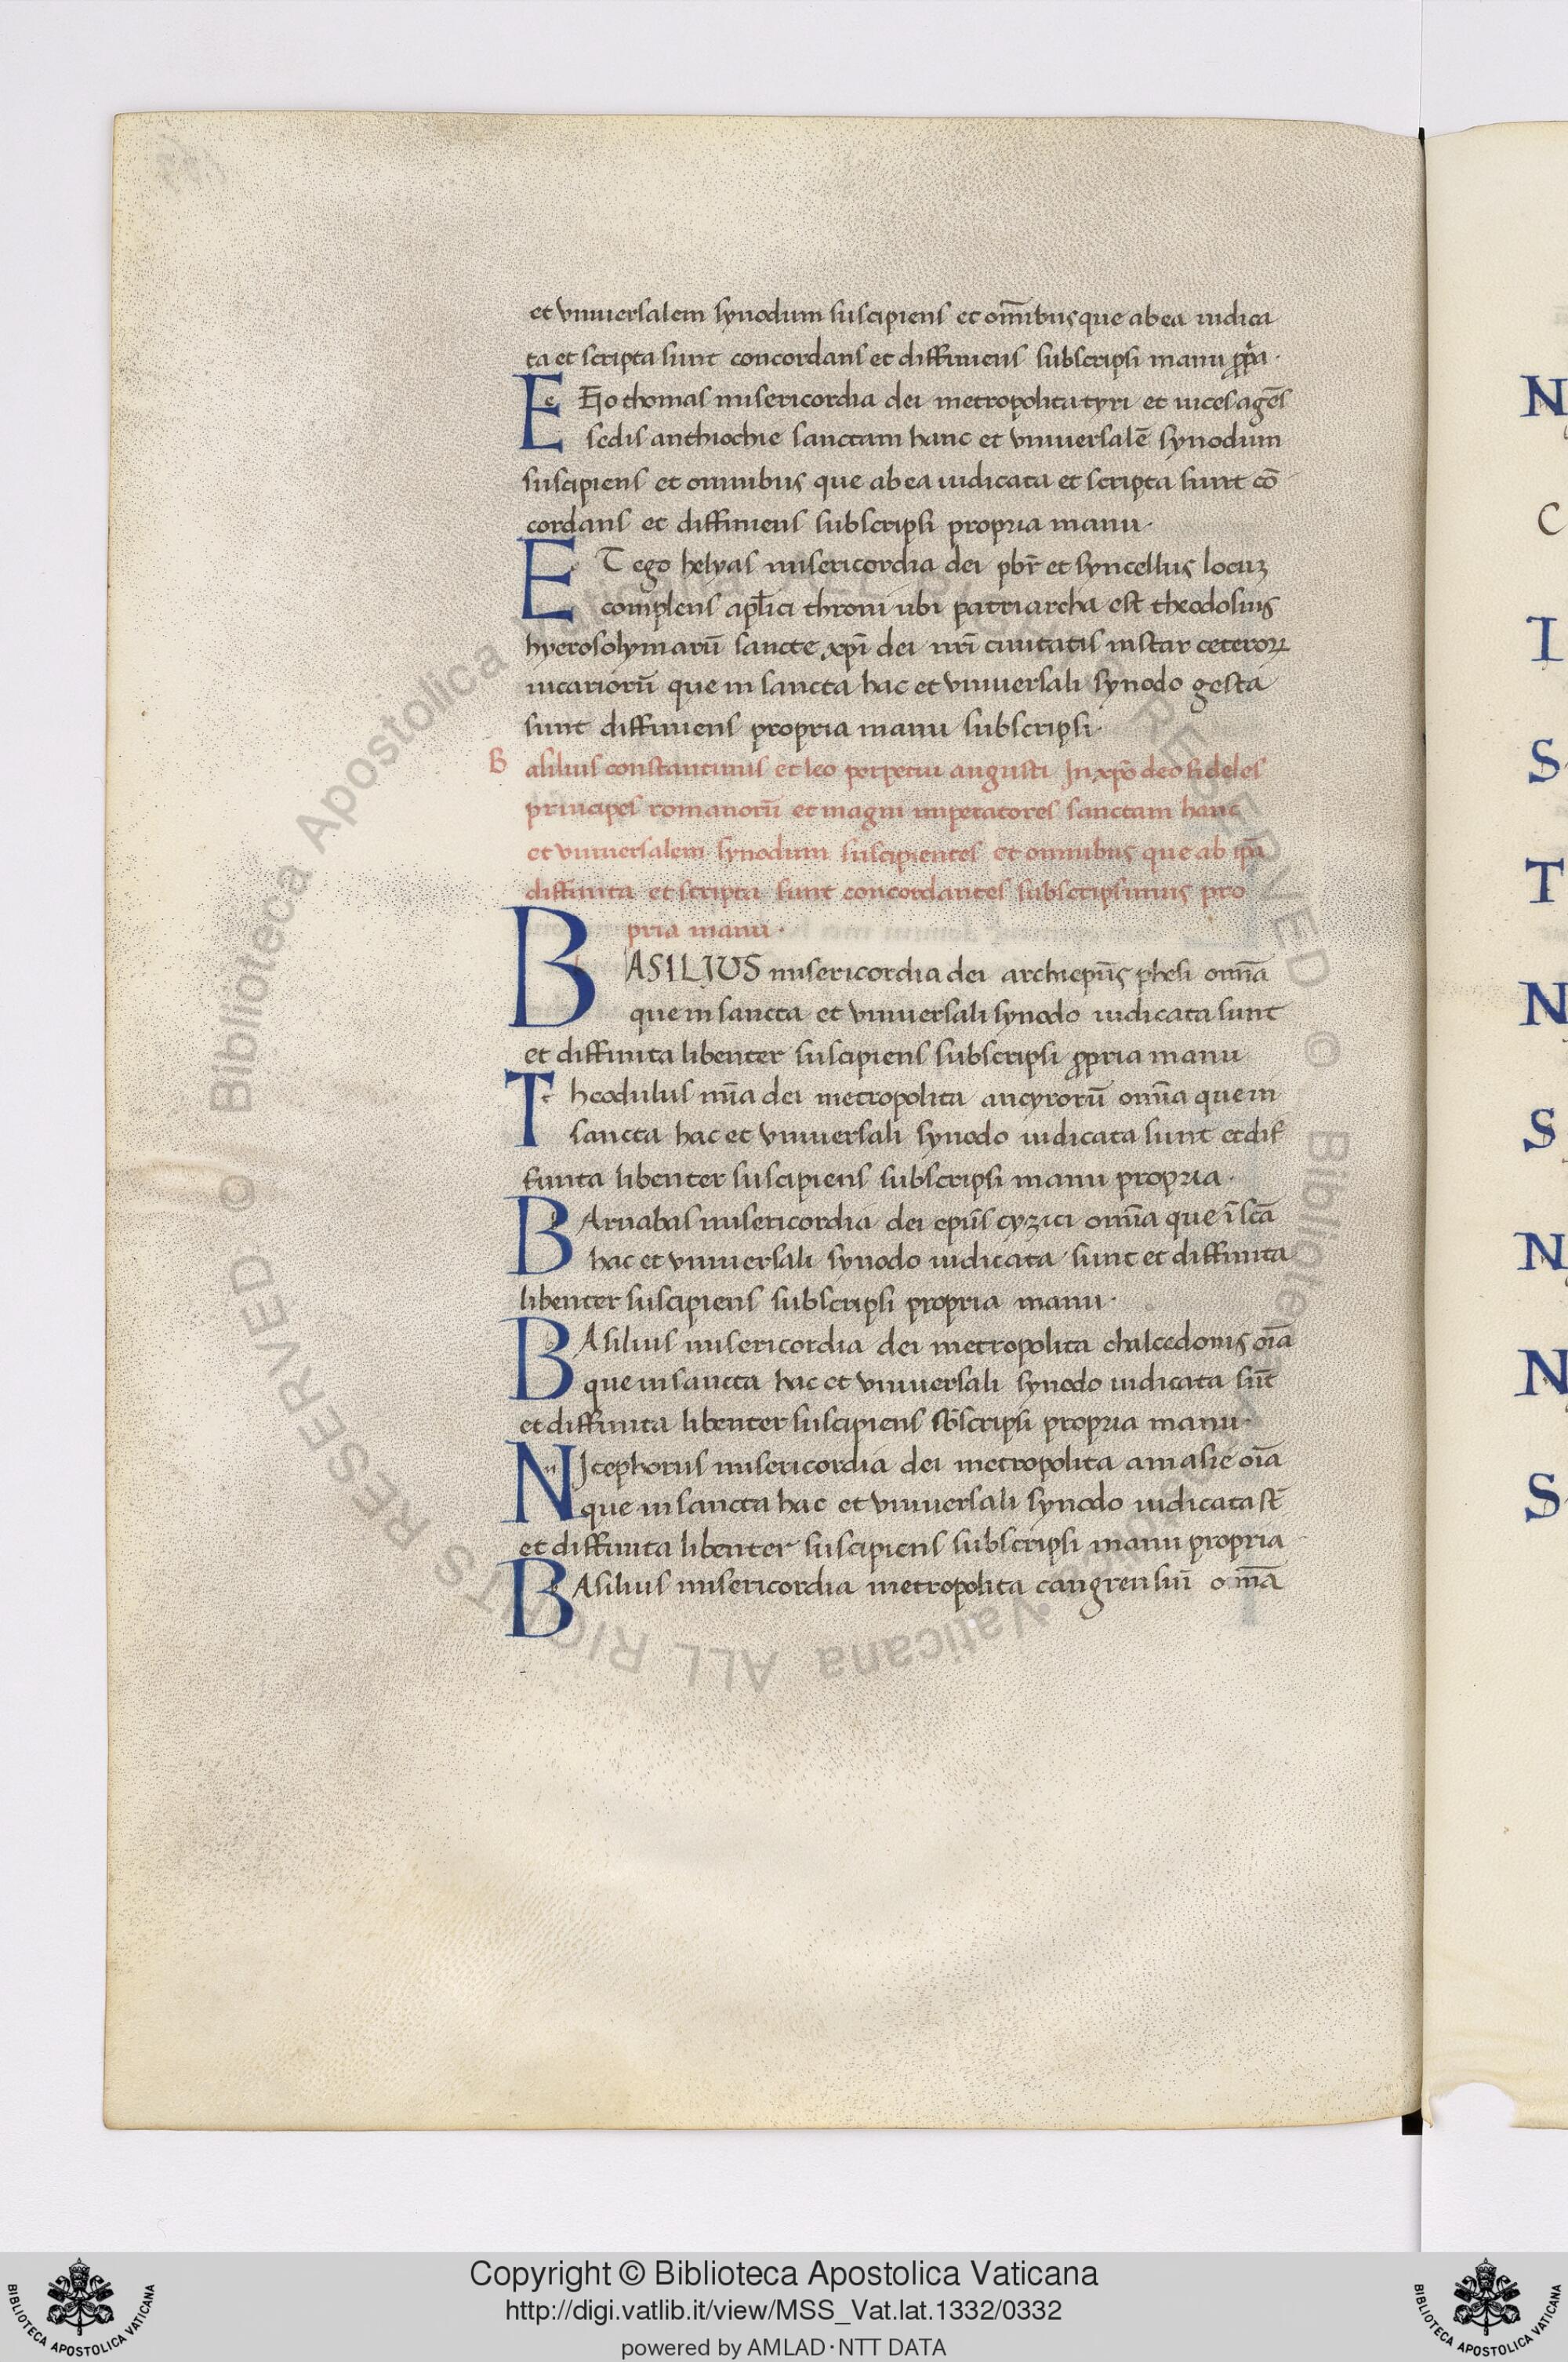 et vniuersalem synodum suscipiens et om̅ibus que ab ea iudica
ta et scripta sunt concordans et diffiniens subscripsi manu ꝓpa ·
E Ego thomas misericordia dei metropolita tyri et uices agēs
sedis anthiochie sanctam hanc et vniuersalē synodum
suscipiens et omnibus que ab ea iudicata et scripta sunt cō
cordans et diffiniens subscripsi propria manu ·
E T ego helyas misericordia dei pbr̄ et syncellus locuʒ
complens apl̄ici throni ubi patriarcha est theodosius
hyerosolymarū sancte xp̄i dei nr̄i ciuitatis instar ceteroꝝ
uicariorū que in sancta hac et vniuersali synodo gesta
sunt diffiniens propria manu subscripsi ·
B asilius constantinus et leo perpetui augusti In xp̄o deo fideles
principes romanorū et magni imperatores sanctam hanc
et vniuersalem synodum suscipientes et omnibus que ab ip̄a
diffinita et scripta sunt concordantes subscripsimus pro
pria manu ·
B ASILIUS misericordia dei archiep̄us ephesi om̅ia
que in sancta et vniuersali synodo iudicata sunt
et diffinita libenter suscipiens subscripsi ꝓpria manu
T heodulus mīa dei metropolita ancyrorū om̅ia que in
sancta hac et vniuersali synodo iudicata sunt et dif
finita libenter suscipiens subscripsi manu propria ·
B Arnabas misericordia dei ep̄us cyzici om̅ia que ī sc̄a
hac et vniuersali synodo iudicata sunt et diffinita
libenter suscipiens subscripsi propria manu ·
B Asilius misericordia dei metropolita chalcedonis oīa
que in sancta hac et vniuersali synodo iudicata sūt
et diffinita libenter suscipiens sb̄scripsi propria manu ·
N Icephorus misericordia dei metropolita amasie oīa
que in sancta hac et vniuersali synodo iudicata st̄
et diffinita libenter suscipiens subscripsi manu propria
B Asilius misericordia metropolita cangrensiū om̅a
N
C
I
S
T
N
S
N
N
S
© Biblioteca Apostolica Vaticana ALL RIGHTS RESERVED
© Biblioteca Apostolica Vaticana ALL RIGHTS RESERVED
Copyright © Biblioteca Apostolica Vaticana
http://digi.vatlib.it/view/MSS_Vat.lat.1332/0332
powered by AMLAD·NTT DATA
BIBLIOTECA APOSTOLICA VATICANA
BIBLIOTECA APOSTOLICA VATICANA